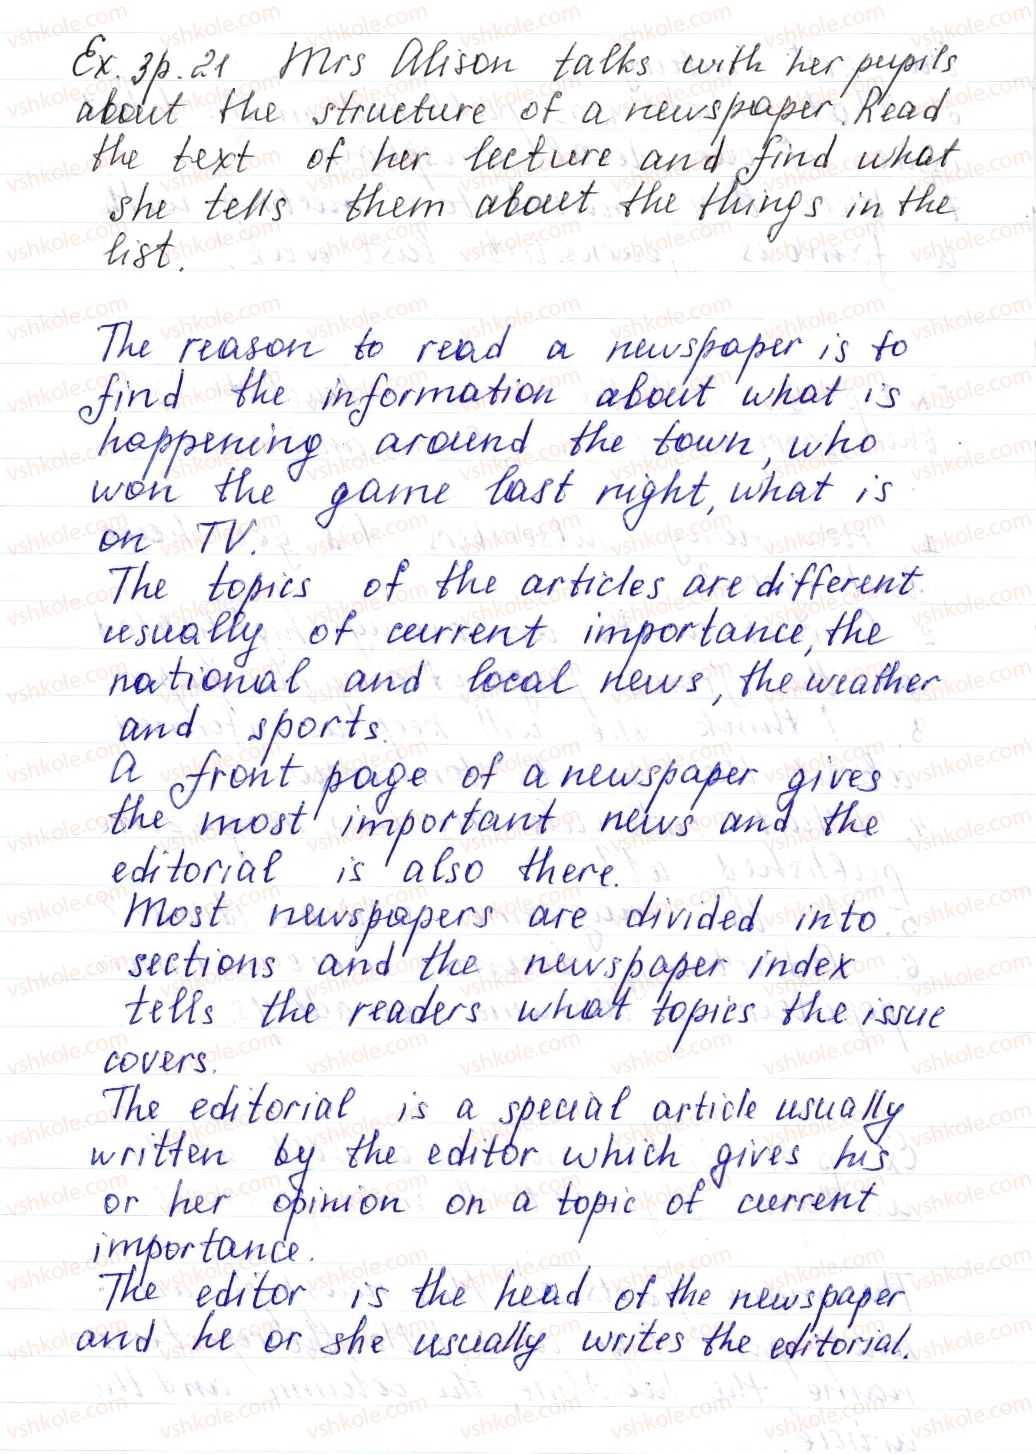 Ex. 3p. 21 Mrs Alison talks with her pupils
about the structure of a newspaper. Read
the text of her lecture and find what
she tells them about the things in the
list.
The reason to read a newspaper is to
find the information about what is
happening around the town, who
won the game last night, what is
on TV.
The topics of the articles are different
usually of current importance, the
national and local news, the weather
and sports.
A front page of a newspaper gives
the most important news and the
editorial is also there.
Most newspapers are divided into
sections and the newspaper index
tells the readers what topics the issue
covers.
The editorial is a special article usually
written by the editor which gives his
or her opinion on a topic of current
importance.
The editor is the head of the newspaper
and he or she usually writes the editorial.
vshkole.com